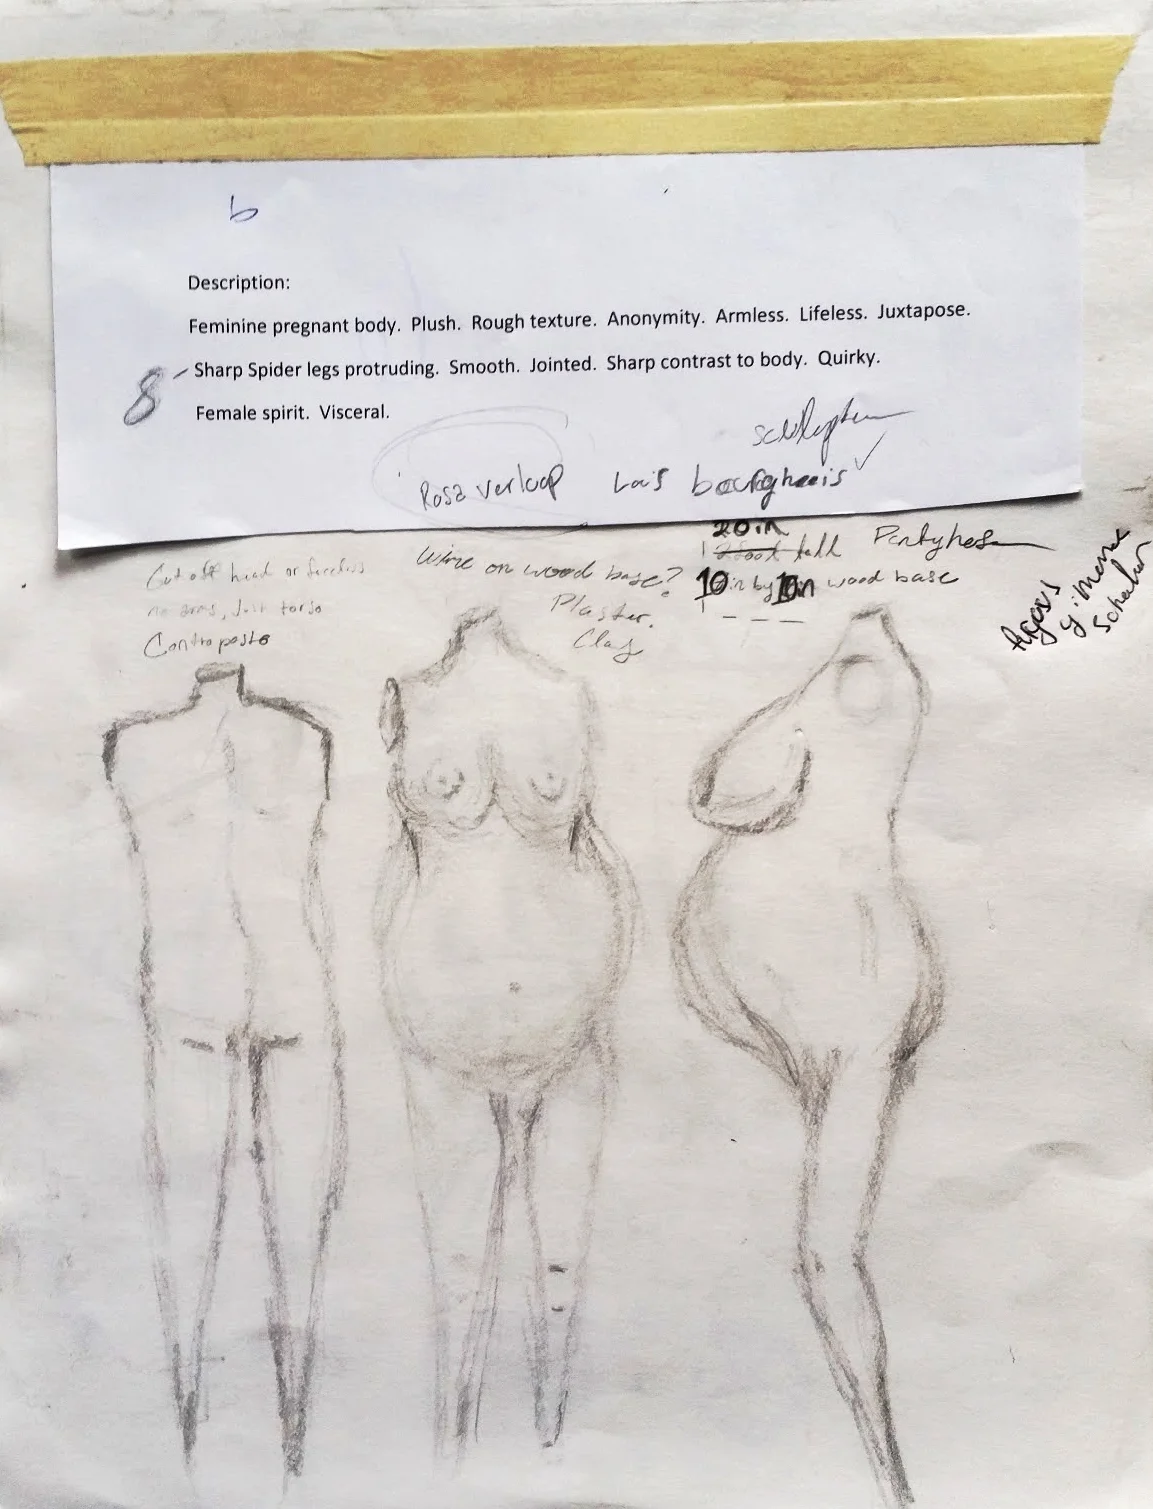 b
Description:
Feminine pregnant body. Plush. Rough texture. Anonymity. Armless. Lifeless. Juxtapose.
8 - Sharp Spider legs protruding. Smooth. Jointed. Sharp contrast to body. Quirky.
Female spirit. Visceral.
Rosa verloop
Lois
Cut off head or faceless
no arms, Just torso
Contraposto
Wire on wood base?
Plaster.
Clay
20 in
tall
10in by 10in wood base